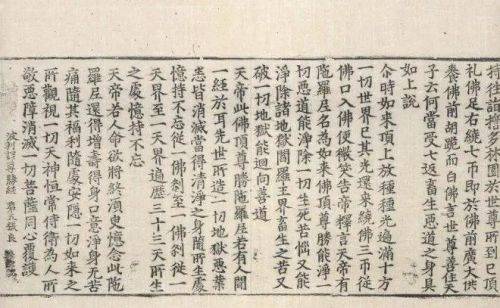 持往詣誓多林園於世尊所到已頂
禮佛足右繞七帀即於佛前廣大供
養佛前胡跪而白佛言世尊善住天
子云何當受七返畜生惡道之身具
如上說
尒時如來頂上放種種光遍滿十方
一切世界已其光還來繞佛三帀從
佛口入佛便微笑告帝釋言天帝有
陁羅尼名為如來佛頂尊勝能淨一
切惡道能淨除一切生死苦惱又能
淨除諸地獄閻羅王界畜生之苦又
破一切地獄能迴向善道
天帝此佛頂尊勝陁羅尼若有人聞
一經於耳先世所造一切地獄惡業
悉皆消滅當得清淨之身隨所生處
憶持不忘從一佛剎至一佛剎從一
天界至一天界遍歷三十三天所生
之處憶持不忘
天帝若人命欲將終須臾憶念此陁
羅尼還得增壽得身口意淨身无苦
痛隨其福利隨處安隱一切如來之
所觀視一切天神恒常侍衛為人所
敬惡障消滅一切菩薩同心覆護
尊勝經 五張 良